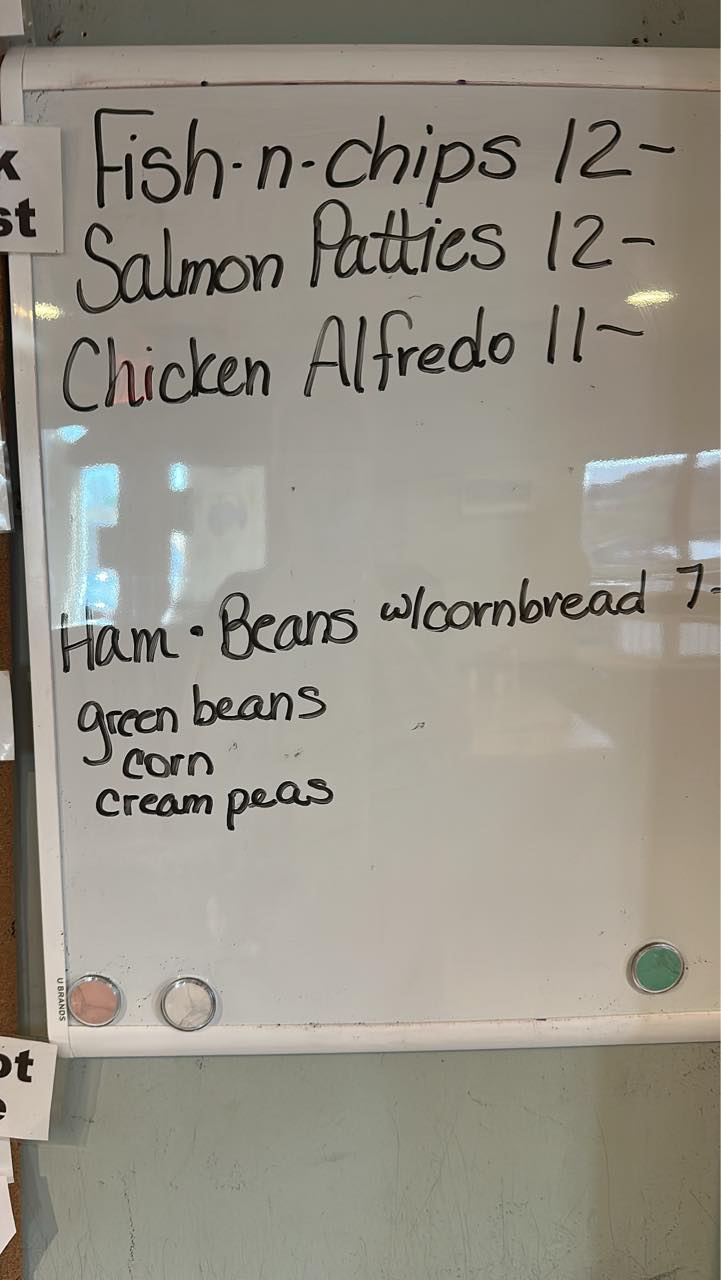 k
st
Fish-n-chips 12-
Salmon Patties 12-
Chicken Alfredo 11~
Ham • Beans w/cornbread 7-
green beans
corn
cream peas
U BRANDS
ot
e